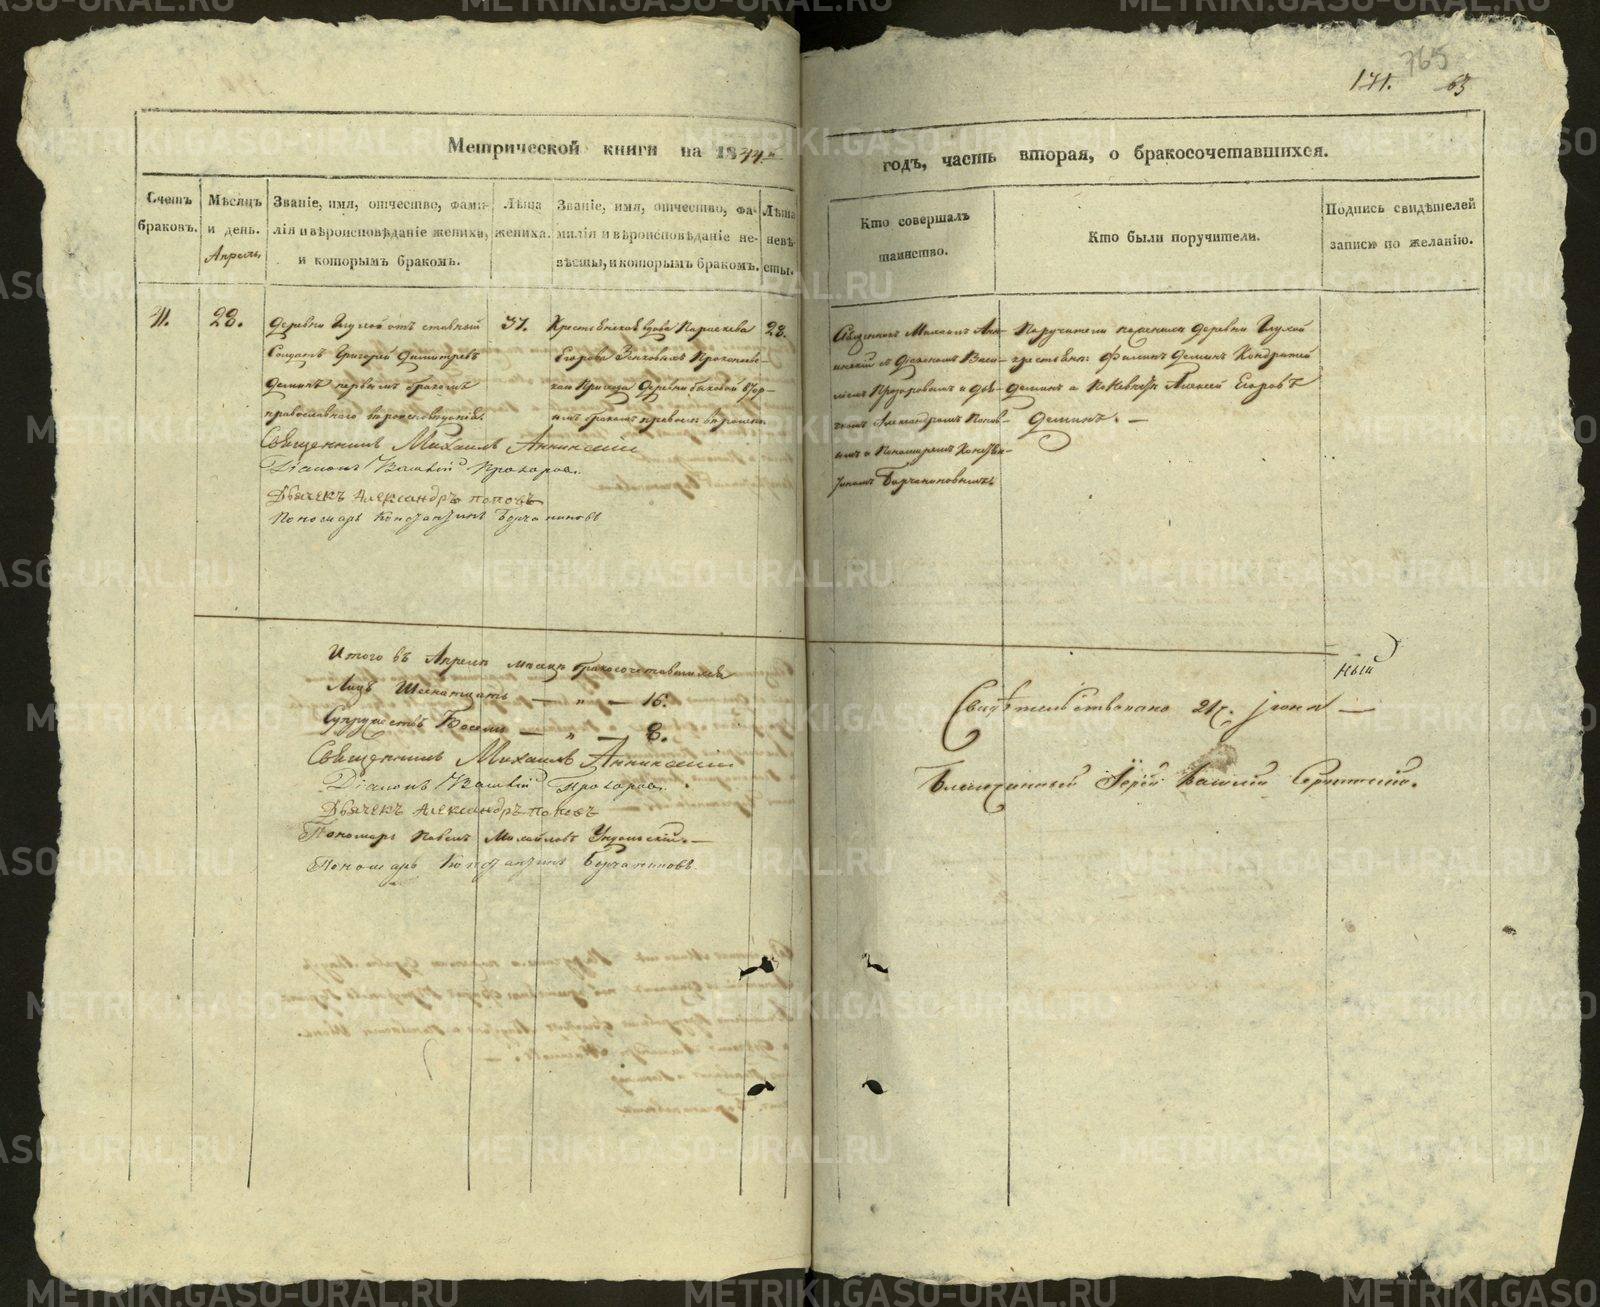 171.
765
63
Метрической книги на 1844.
годъ, часть вторая, о бракосочетавшихся.
Счетъ браковъ.
Мѣсяцъ и день.
Апрель
Званіе, имя, отчество, фами-
лія и вѣроисповѣданіе жениха,
и которымъ бракомъ.
Лѣта
жениха.
Званіе, имя, отчество, фа-
милія и вѣроисповѣданіе не-
вѣсты, и которымъ бракомъ.
Лѣта
невѣ-
сты.
Кто совершалъ
таинство.
Кто были поручители.
Подпись свидѣтелей
записи по желанію.
28.
Деревни Глухой отставный
Солдатъ Григорій Димитріевъ
Деминъ первымъ бракомъ
православнаго вѣроисповѣданія.
37.
Крестьянская вдова Параскева
Егорова
Прихода Деревни
28.
Священникъ Михаилъ Ан-
нинскій съ Діакономъ Васи-
ліемъ Прозоровымъ и Дья-
чкомъ Александромъ Попов-
ымъ и Пономаремъ Констан-
тиномъ Борчаниновымъ
Поручители по женихѣ деревни Глухой
крестьяне: Филипъ Деминъ Кондратей
Деминъ а по невѣстѣ Алексей Егоровъ
Деминъ. —
Священникъ Михаилъ Аннинскій
Діаконъ Василій Прозоровъ.
Дьячекъ Александръ Поповъ
Пономарь Константинъ Борчаниновъ
Итого въ Апрелѣ месяцѣ бракосочетавшихся
Лицъ Шеснатцать — „ — 16.
Супружествъ Восемь — „ — 8.
Священникъ Михаилъ Аннинскій
Діаконъ Василій Прозоровъ.
Дьячекъ Александръ Поповъ
Пономарь Павелъ Михайловъ Ундольскій. —
Пономарь Константинъ Борчаниновъ.
ный
Свидѣтельствовано 21. Іюня —
Благочинный Іерей Василій